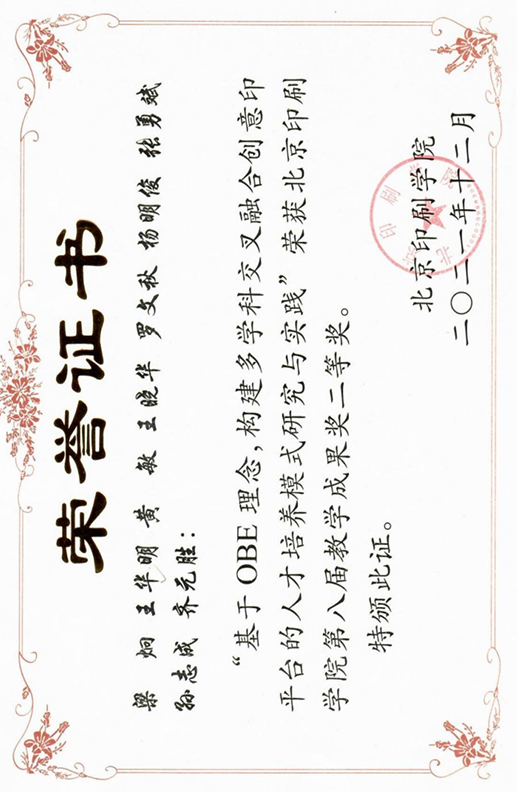 荣誉证书
梁 炯 王华明 黄 敏 王晓华 罗文秋 杨明俊 张勇斌
孙志成 齐元胜：
“基于OBE理念，构建多学科交叉融合创意印
平台的人才培养模式研究与实践”荣获北京印刷
学院第八届教学成果奖二等奖。
特颁此证。
北京印刷学院
二〇二一年十二月